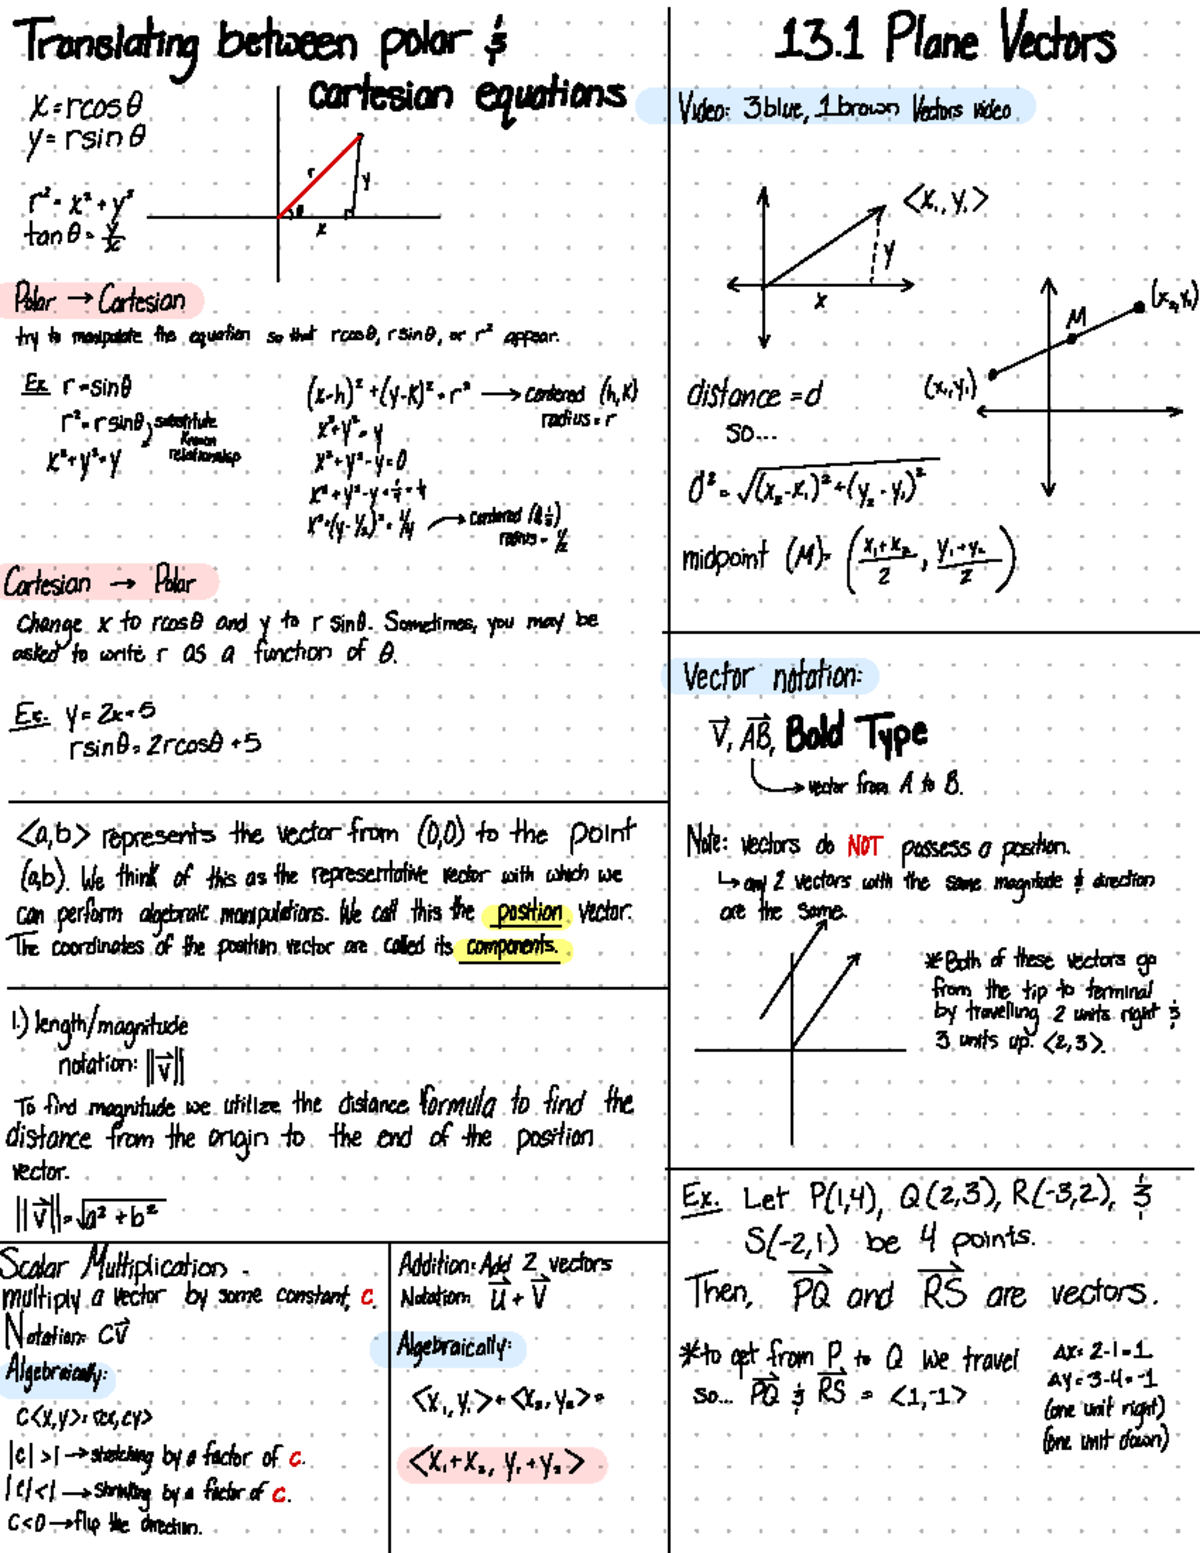 Translating between polar &
cartesian equations
x = rcosθ
y = rsinθ
r² = x² + y²
tanθ = y/x
r
y
θ
x
Polar → Cartesian
try to manipulate the equation so that rcosθ, rsinθ, or r² appear.
Ex r = sinθ
r² = rsinθ
substitute
known
relationship
x² + y² = y
(x-h)² + (y-k)² = r² → centered (h,k)
radius = r
x² + y² = y
x² + y² - y = 0
x² + y² - y + 1/4 = 1/4
x² + (y - 1/2)² = 1/4 → centered
radius = 1/2
Cartesian → Polar
Change x to rcosθ and y to r sinθ. Sometimes, you may be
asked to write r as a function of θ.
Ex. y = 2x + 5
rsinθ = 2rcosθ + 5
<a,b> represents the vector from (0,0) to the point
(a,b). We think of this as the representative vector with which we
can perform algebraic manipulations. We call this the position vector.
The coordinates of the position vector are called its components.
1.) length/magnitude
notation: ||v⃗||
To find magnitude we utilize the distance formula to find the
distance from the origin to the end of the position
vector.
||v⃗|| = √a² + b²
Scalar Multiplication -
multiply a vector by some constant, c.
Notation: cv⃗
Algebraically:
c<x,y> = <cx,cy>
|c| > 1 → stretching by a factor of c.
|c| < 1 → shrinking by a factor of c.
c < 0 → flip the direction.
Addition: Add 2 vectors
Notation: u⃗ + v⃗
Algebraically:
<x₁, y₁> + <x₂, y₂> =
<x₁ + x₂, y₁ + y₂>
13.1 Plane Vectors
Video: 3blue, 1brown Vectors video
<x₁, y₁>
y
x
(x₂,y₂)
M
(x₁,y₁)
distance = d
so...
d² = √(x₂-x₁)² + (y₂-y₁)²
midpoint (M) = (x₁+x₂/2, y₁+y₂/2)
Vector notation:
v⃗, AB⃗, Bold Type
→ vector from A to B.
Note: vectors do NOT possess a position.
↳ any 2 vectors with the same magnitude & direction
are the same.
*Both of these vectors go
from the tip to terminal
by travelling 2 units right &
3 units up. <2,3>.
Ex. Let P(1,4), Q(2,3), R(-3,2), &
S(-2,1) be 4 points.
Then, PQ⃗ and RS⃗ are vectors.
*to get from P to Q we travel
so... PQ⃗ & RS⃗ = <1,-1>
Δx = 2-1 = 1
Δy = 3-4 = -1
(one unit right)
(one unit down)